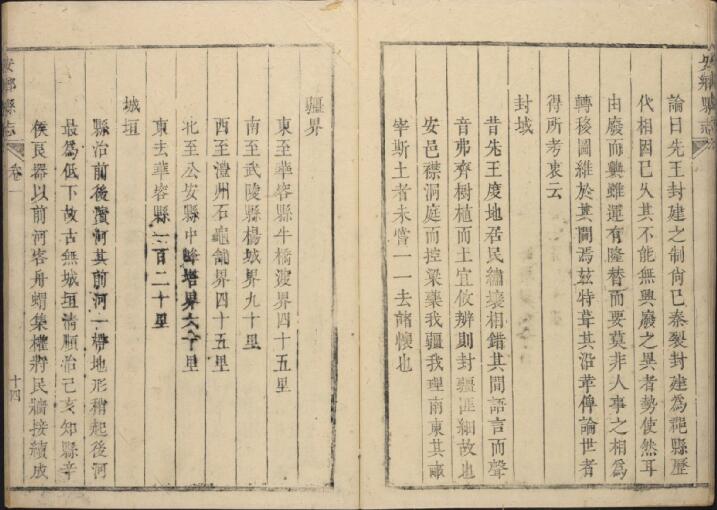 安鄉縣志
論曰先王封建之制尚已秦裂封建為郡縣歷
代相因已久其不能無興廢之異者勢使然耳
由廢而興雖運有隆替而要莫非人事之相為
轉移圖維於其間焉茲特葺其沿革俾論世者
得所考衷云
封域
昔先王度地居民繡壤相錯其間語言而聲
音弗齊樹植而土宜攸辨則封疆匪細故也
安邑襟洞庭而控梁蘗我疆我理南東其畝
宰斯土者未嘗一一去諸懷也
疆界
東至華容縣牛橋渡界四十五里
南至武陵縣楊城界九十里
西至澧州石龜界四十五里
北至公安縣中峰塔界六十里
東去華容縣一百二十里
城垣
縣治前後濱河其前河一帶地形稍起後河
最為低下故古無城垣清順治己亥知縣辛
侯良器以前河客舟蝟集權將民牆接續成
安鄉縣志
卷一
十四